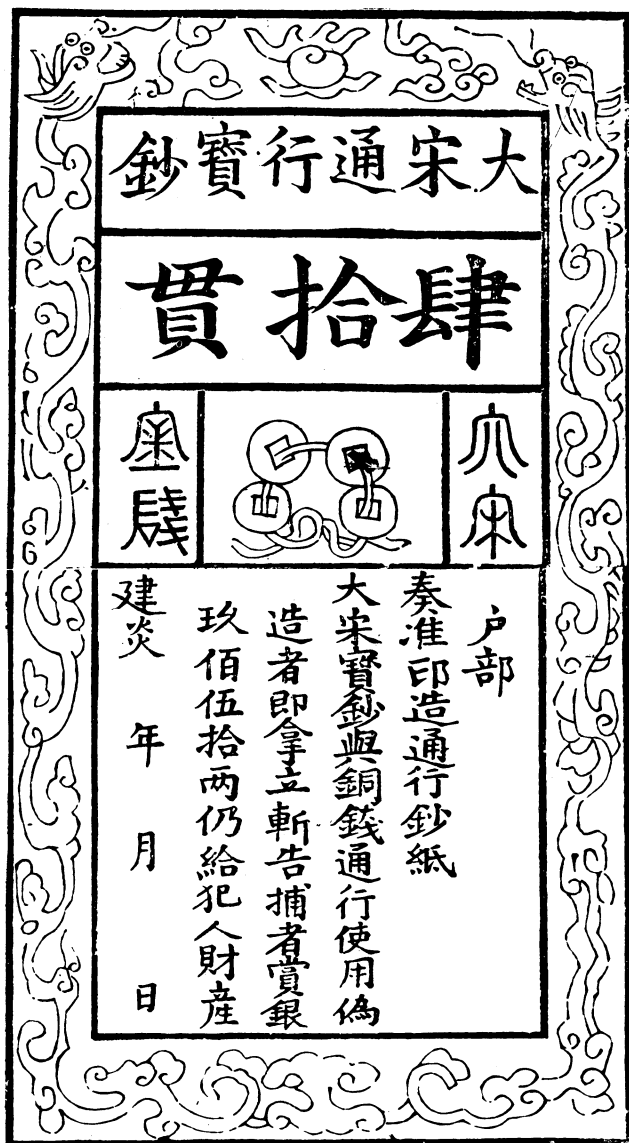 大宋通行寶鈔
肆拾貫
大宋
户部
奏准印造通行鈔紙
大宋寶鈔與銅錢通行使用偽
造者即拿立斬告捕者賞銀
玖佰伍拾两仍給犯人財産
建炎 年 月 日